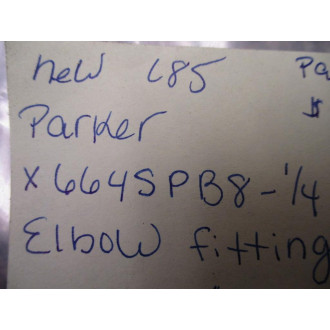 new 685 Pa
Parker $
x664SPB8-1/4
Elbow fitting